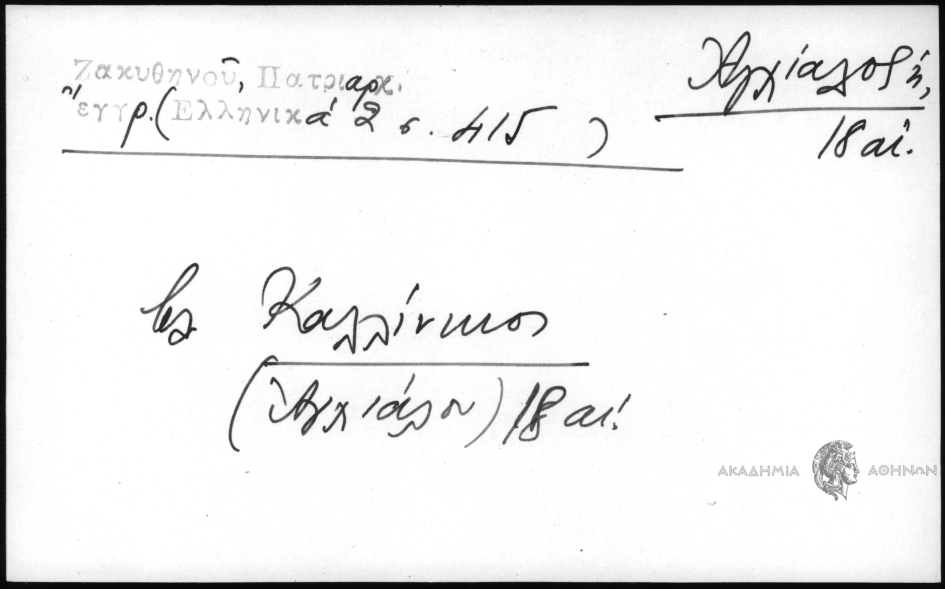 Ζακυθηνοῦ, Πατριαρχ.
ἔγγρ. (Ἑλληνικά 2 σ. 415)
Ἀγχίαλος ἡ,
18 αἰ.
βλ Καλλίνικος
(Ἀγχιάλου) 18 αἰ.
ΑΚΑΔΗΜΙΑ ΑΘΗΝΩΝ